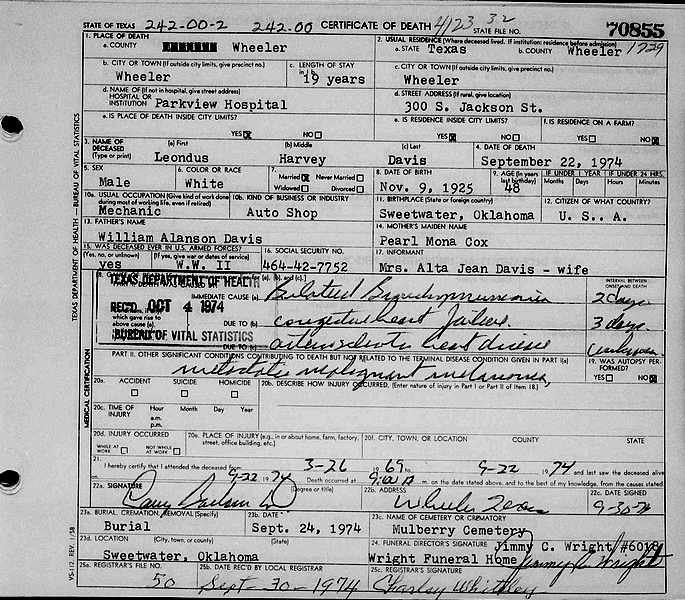 STATE OF TEXAS 242-00-2 242-00 CERTIFICATE OF DEATH 4123 32
STATE FILE NO. 70855
1. PLACE OF DEATH
a. COUNTY Wheeler
2. USUAL RESIDENCE (Where deceased lived. If institution: residence before admission)
a. STATE Texas b. COUNTY Wheeler 1729
b. CITY OR TOWN (If outside city limits, give precinct no.)
Wheeler
c. LENGTH OF STAY in 1b
19 years
c. CITY OR TOWN (If outside city limits, give precinct no.)
Wheeler
d. NAME OF (If not in hospital, give street address)
HOSPITAL OR
INSTITUTION Parkview Hospital
d. STREET ADDRESS (If rural, give location)
300 S. Jackson St.
e. IS PLACE OF DEATH INSIDE CITY LIMITS?
YES NO
e. IS RESIDENCE INSIDE CITY LIMITS?
YES NO
f. IS RESIDENCE ON A FARM?
YES NO
3. NAME OF DECEASED (Type or print)
(a) First (b) Middle (c) Last
Leondus Harvey Davis
4. DATE OF DEATH
September 22, 1974
5. SEX
Male
6. COLOR OR RACE
White
7.
Married Never Married
Widowed Divorced
8. DATE OF BIRTH
Nov. 9, 1925
9. AGE (In years last birthday)
48
IF UNDER 1 YEAR IF UNDER 24 HRS.
Months Days Hours Minutes
10a. USUAL OCCUPATION (Give kind of work done during most of working life, even if retired)
Mechanic
10b. KIND OF BUSINESS OR INDUSTRY
Auto Shop
11. BIRTHPLACE (State or foreign country)
Sweetwater, Oklahoma
12. CITIZEN OF WHAT COUNTRY?
U. S.. A.
13. FATHER'S NAME
William Alanson Davis
14. MOTHER'S MAIDEN NAME
Pearl Mona Cox
15. WAS DECEASED EVER IN U.S. ARMED FORCES?
(Yes, no, or unknown) (If yes, give war or dates of service)
yes W.W. II
16. SOCIAL SECURITY NO.
464-42-7752
17. INFORMANT
Mrs. Alta Jean Davis - wife
TEXAS DEPARTMENT OF HEALTH
REC'D OCT 4 1974
BUREAU OF VITAL STATISTICS
INTERVAL BETWEEN ONSET AND DEATH
IMMEDIATE CAUSE (a) Bilateral Bronchopneumonia 2 days
DUE TO (b) congestive heart failure 3 days
DUE TO (c) arteriosclerotic heart disease
PART II. OTHER SIGNIFICANT CONDITIONS CONTRIBUTING TO DEATH BUT NOT RELATED TO THE TERMINAL DISEASE CONDITION GIVEN IN PART I(a)
metastatic malignant melanoma
19. WAS AUTOPSY PERFORMED?
YES NO
20a. ACCIDENT SUICIDE HOMICIDE
20b. DESCRIBE HOW INJURY OCCURRED. (Enter nature of injury in Part I or Part II of Item 18.)
20c. TIME OF INJURY Hour Month Day Year
a.m.
p.m.
20d. INJURY OCCURRED
WHILE AT WORK NOT WHILE AT WORK
20e. PLACE OF INJURY (e.g., in or about home, farm, factory, street, office building, etc.)
20f. CITY, TOWN, OR LOCATION COUNTY STATE
21. I hereby certify that I attended the deceased from 3-26 1969 to 9-22 1974 and last saw the deceased alive
9-22 1974 Death occurred at m. on the date stated above, and to the best of my knowledge, from the causes stated
22a. SIGNATURE (Degree or title)
22b. ADDRESS
Wheeler Texas
22c. DATE SIGNED
9-30-74
23a. BURIAL, CREMATION, REMOVAL (Specify)
Burial
23b. DATE
Sept. 24, 1974
23c. NAME OF CEMETERY OR CREMATORY
Mulberry Cemetery
23d. LOCATION (City, town, or county) (State)
Sweetwater, Oklahoma
24. FUNERAL DIRECTOR'S SIGNATURE Jimmy C. Wright/#6018
Wright Funeral Home Jimmy C. Wright
25a. REGISTRAR'S FILE NO.
50
25b. DATE REC'D BY LOCAL REGISTRAR
Sept-30-1974
25c. REGISTRAR'S SIGNATURE
Charley Whitley
TEXAS DEPARTMENT OF HEALTH — BUREAU OF VITAL STATISTICS
MEDICAL CERTIFICATION
VS-112 REV. 1/58